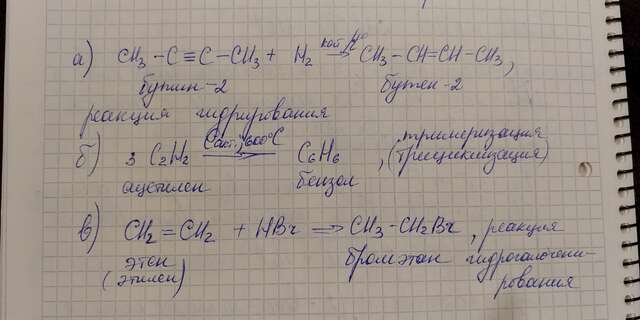 а) CH₃ -C ≡C -CH₃ + H₂ →кат, t° CH₃ - CH=CH - CH₃,
бутин-2 бутен-2
реакция гидрирования
б) 3 C₂H₂ →Cакт., 600°C C₆H₆ , тримеризация
ацетилен бензол
в) CH₂ = CH₂ + HBr ⇒ CH₃ - CH₂Br, реакция
этен бромэтан гидрогалогени-
(этилен) рования